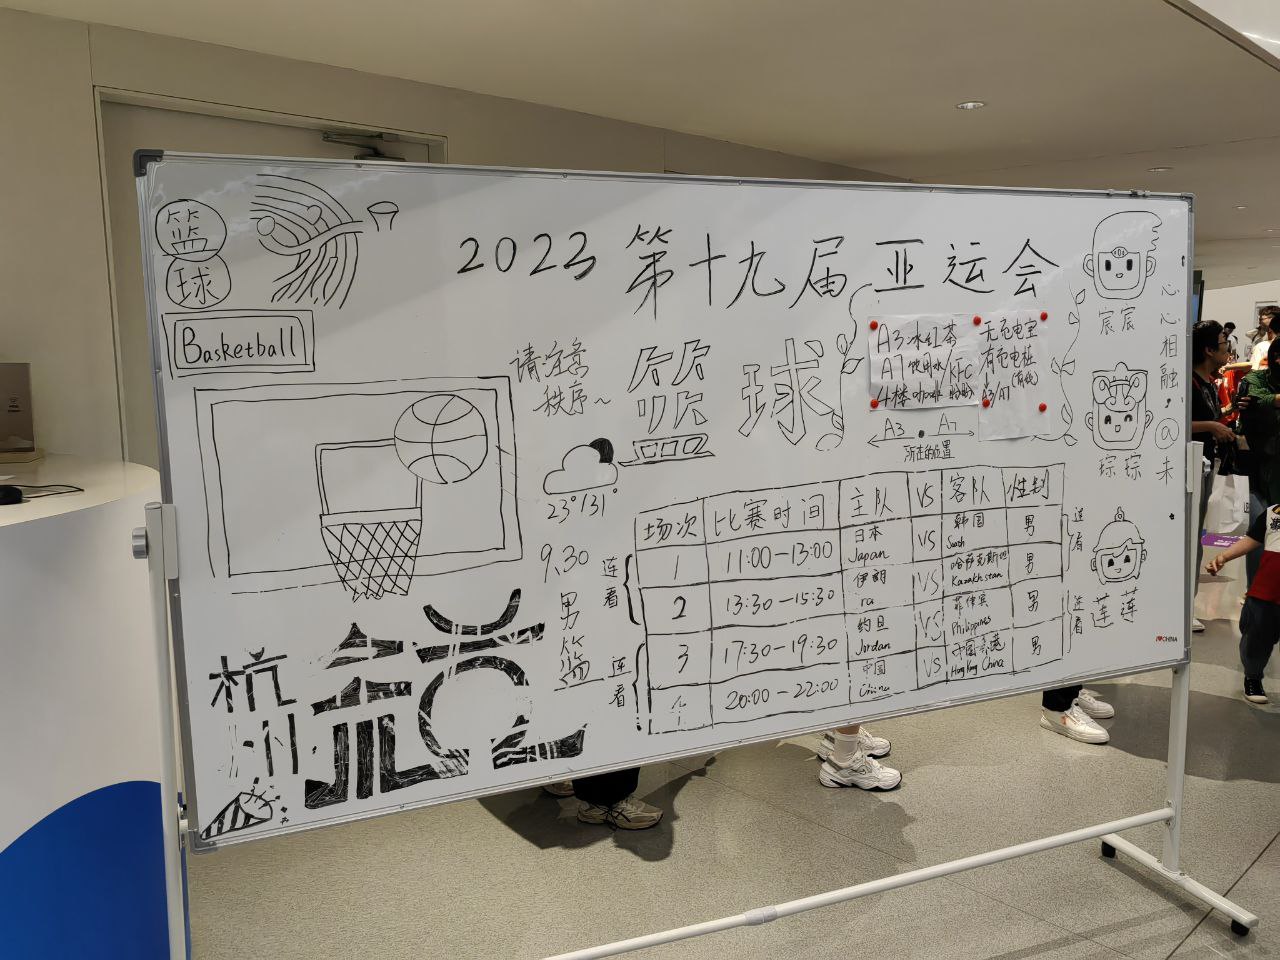 篮
球
Basketball
2023 第十九届亚运会
请注意
秩序~
篮球
A3 冰红茶
A7 饮用水/KFC
4楼
无充电宝
有充电桩
A3/A7
A3 A7
所在的位置
23°/31°
9.30
男
篮
连看
连看
场次 比赛时间 主队 VS 客队 性别
1 11:00-13:00 日本 Japan VS 韩国 South 男
2 13:30-15:30 伊朗 ra VS 哈萨克斯坦 Kazakhstan 男
3 17:30-19:30 约旦 Jordan VS 菲律宾 Philippines 男
20:00-22:00 中国 China VS 中国香港 Hong Kong China 男
连看
连看
宸宸
琮琮
莲莲
心心相融,@未
I♥CHINA
杭州